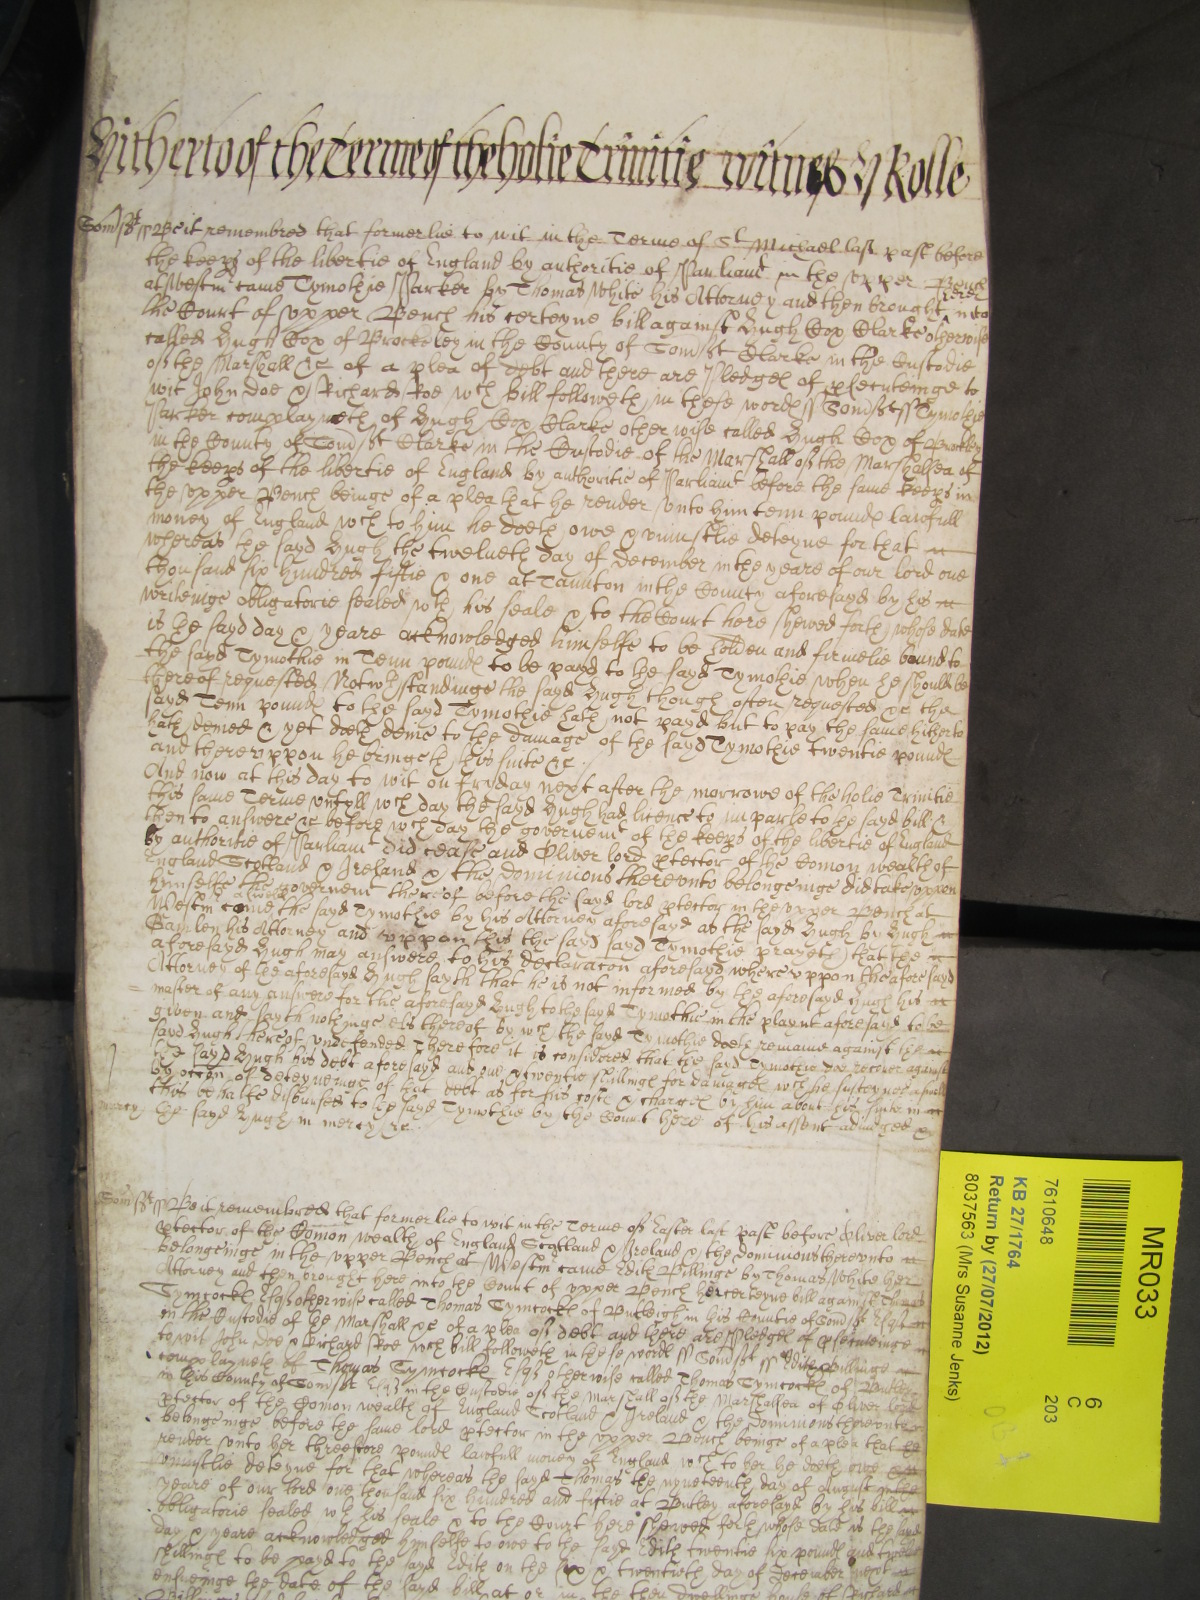 Hitherto of the Terme of the holie Trinitie witnes H Rolle
Somst ss Be it remembred that formerlie to wit in the Terme of St Michael last past before
the keeps of the libertie of England by authoritie of Parliamt in the upper Bench
at Westm came Tymothie Parker by Thomas White his Attorney and then brought here into
the Court of upper Bench his certeyne bill against Hugh Cox Clarke otherwise
called Hugh Cox of Brockeley in the County of Somst Clarke in the Custodie
of the Marshall &c of a plea of debt and there are Pledges of psecuteinge to
wit John Doe & Richard Roe wch bill followeth in these words ss Somst ss Tymothie
Parker complayneth of Hugh Cox Clarke otherwise called Hugh Cox of Brockley
in the County of Somst Clarke in the Custodie of the Marshall of the Marshalsea of
the keeps of the libertie of England by authoritie of Parliamt before the same keeps in
the upper Bench beinge of a plea that he render unto him tenn pounds lawfull
money of England wch to him he doeth owe & uniustlie deteyne for that
whereas the sayd Hugh the twelueth day of December in the yeare of our lord one
thousand six hundred fiftie & one at Taunton in the County aforesayd by his
writeinge obligatorie sealed wth his seale & to the Court here shewed forth whose date
is the sayd day & yeare acknowledged himselfe to be holden and firmelie bound to
the sayd Tymothie in Tenn pounds to be payd to the sayd Tymothie when he should be
thereof requested Notwthstandinge the sayd Hugh though often requested &c the
sayd Tenn pounds to the sayd Tymothie hath not payd but to pay the same hitherto
hath denied & yet doeth denie to the damage of the sayd Tymothie twentie pounds
and thereuppon he bringeth his suite &c
And now at this day to wit on fryday next after the morrowe of the holie Trinitie
this same Terme untyll wch day the sayd Hugh had licence to imparle to the sayd bill &
then to answere &c before wch day the governemt of the keeps of the libertie of England
by authoritie of Parliamt did cease and Oliver lord ptector of the Comon wealth of
England Scotland & Ireland & the dominions thereunto belongeinge did take uppon
himselfe the governemt thereof before the sayd lord ptector in the upper Bench at
Westm came the sayd Tymothie by his Attorney aforesayd as the sayd Hugh by Hugh
his Attorney and uppon this the sayd sayd Tymothie prayeth that the
aforesayd Hugh may answere to his declaracon aforesayd whereuppon the aforesayd
Attorney of the aforesayd Hugh sayth that he is not informed by the aforesayd Hugh his
master of any answere for the aforesayd Hugh to the sayd Tymothie in the playnt aforesayd to be
given and sayth nothinge els thereof by wch the sayd Tymothie doeth remaine against the
sayd Hugh hereof undefended Therefore it is considered that the sayd Tymothie doe recover against
the sayd Hugh his debt aforesayd and one & twentie shillings for damages wch he susteyned aswell
by occon of deteyneinge of that debt as for his costs & charges by him about his suite in
this behalfe disbursed to the sayd Tymothie by the Court here of his assent adiudged &
mercy the sayd Hugh in mercy &c
Somst ss Be it remembred that formerlie to wit in the Terme of Easter last past before Oliver lord
ptector of the Comon wealth of England Scotland & Ireland & the dominions thereunto
belongeinge in the upper Bench at Westm came Edith Billinge by Thomas White her
Attorney and then brought here into the Court of upper Bench her certeyne bill against Thomas
Tymcocke Esqr otherwise called Thomas Tymcocke of Butleigh in his Countie of Somst Esqr
in the Custodie of the Marshall &c of a plea of debt and there are Pledges of psecuteinge
to wit John Doe & Richard Roe wch bill followeth in these words ss Somst ss Edith Billinge
complayneth of Thomas Tymcocke Esqr otherwise called Thomas Tymcocke of
in his County of Somst Esqr in the Custodie of the Marshall of the Marshalsea of Oliver lord
ptector of the Comon wealth of England Scotland & Ireland & the dominions thereunto
belongeinge before the same lord ptector in the upper Bench beinge of a plea that he
render unto her threescore pounds lawfull money of England wch to her he doeth owe
uniustlie deteyne for that whereas the sayd Thomas the nyneteenth day of August in the
yeare of our lord one thousand six hundred and fiftie at aforesayd by his bill
obligatorie sealed wth his seale & to the Court here shewed forth whose date is the sayd
day & yeare acknowledged himselfe to owe to the sayd Edith twentie six pounds and twelve
shillings to be payd to the sayd Edith on the & twentieth day of December next
ensueinge the date of the sayd bill at or in the then dwellinge house of Richard
MR033
6
C
7610648 203
KB 27/1764
Return by (27/07/2012)
8037563 (Mrs Susanne Jenks)